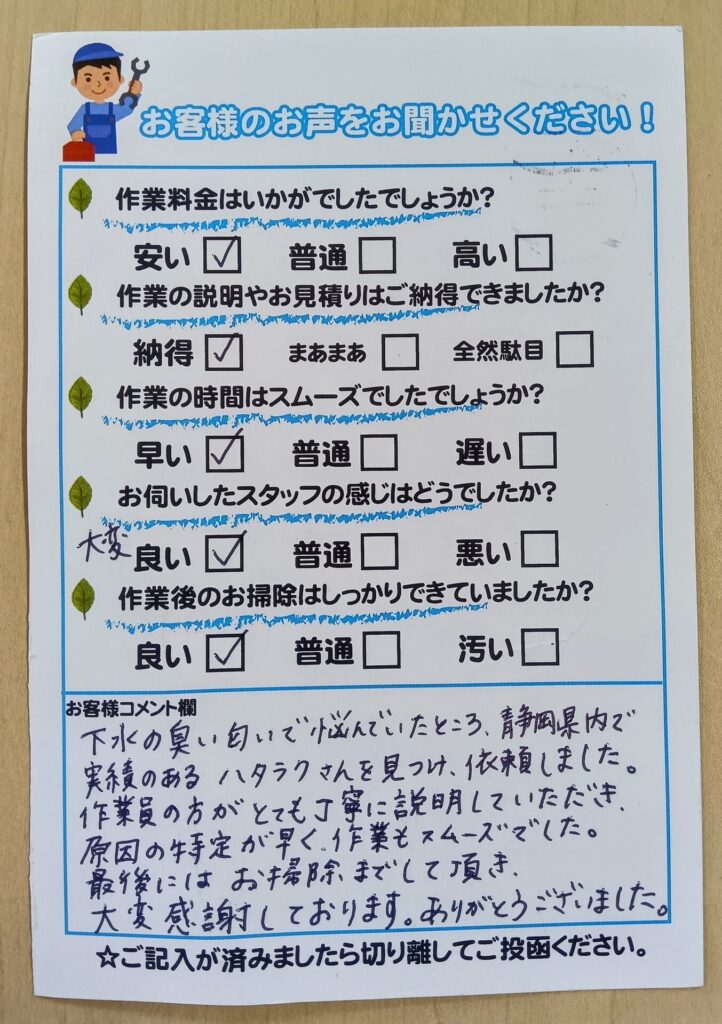 お客様のお声をお聞かせください！
作業料金はいかがでしたでしょうか?
安い ☑ 普通 □ 高い □
作業の説明やお見積りはご納得できましたか?
納得 ☑ まあまあ □ 全然駄目 □
作業の時間はスムーズでしたでしょうか?
早い ☑ 普通 □ 遅い □
お伺いしたスタッフの感じはどうでしたか?
大変 良い ☑ 普通 □ 悪い □
作業後のお掃除はしっかりできていましたか?
良い ☑ 普通 □ 汚い □
お客様コメント欄
下水の臭い匂いで悩んでいたところ、静岡県内で
実績のある ハタラクさんを見つけ、依頼しました。
作業員の方がとても丁寧に説明していただき、
原因の特定が早く、作業もスムーズでした。
最後には お掃除までして頂き、
大変感謝しております。ありがとうございました。
☆ご記入が済みましたら切り離してご投函ください。